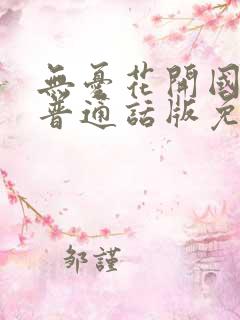 無憂花開國
普通話版免
邹謹